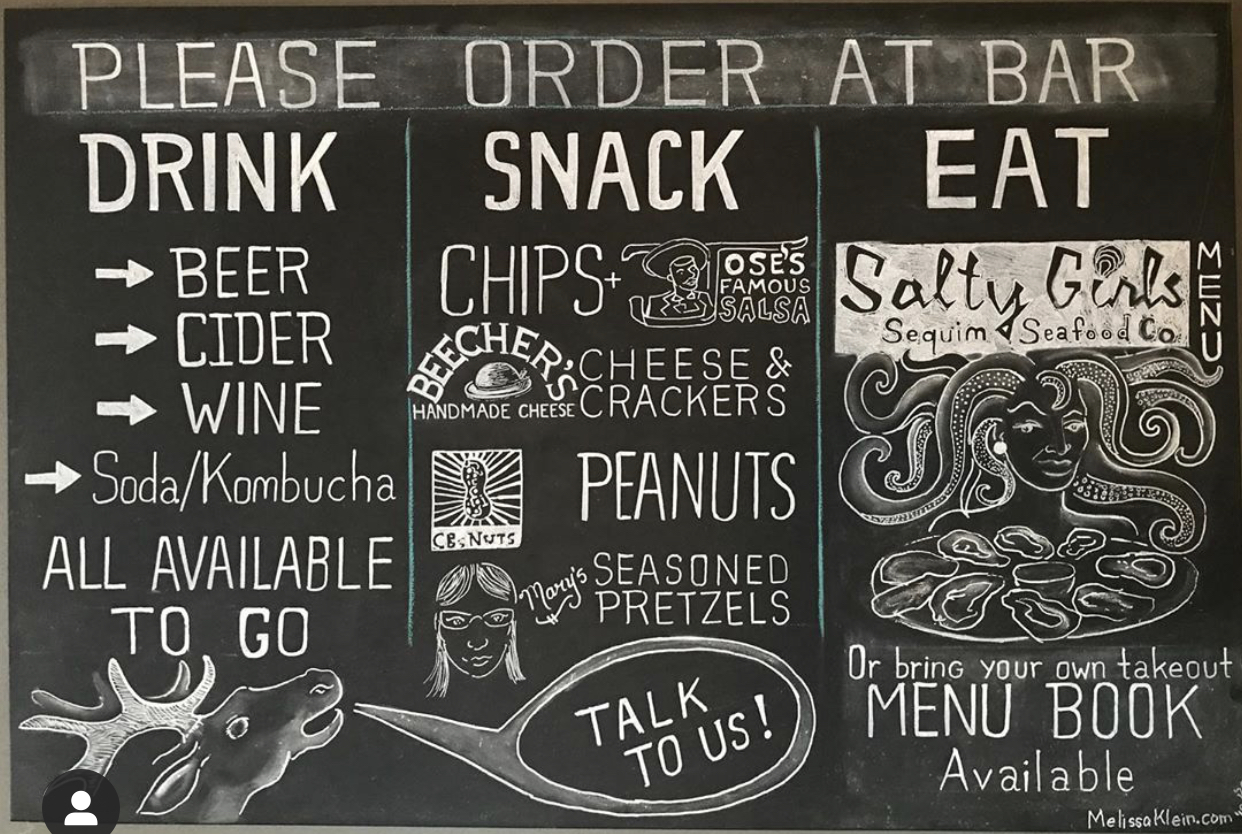 PLEASE ORDER AT BAR
DRINK
BEER
CIDER
WINE
Soda/Kombucha
ALL AVAILABLE
TO GO
SNACK
CHIPS+
OSE'S
FAMOUS
SALSA
BEECHER'S
HANDMADE CHEESE
CHEESE &
CRACKERS
CB's NUTS
PEANUTS
Mary's
SEASONED
PRETZELS
TALK
TO US!
EAT
Salty Girls
Sequim Seafood Co.
MENU
Or bring your own takeout
MENU BOOK
Available
MelissaKlein.com